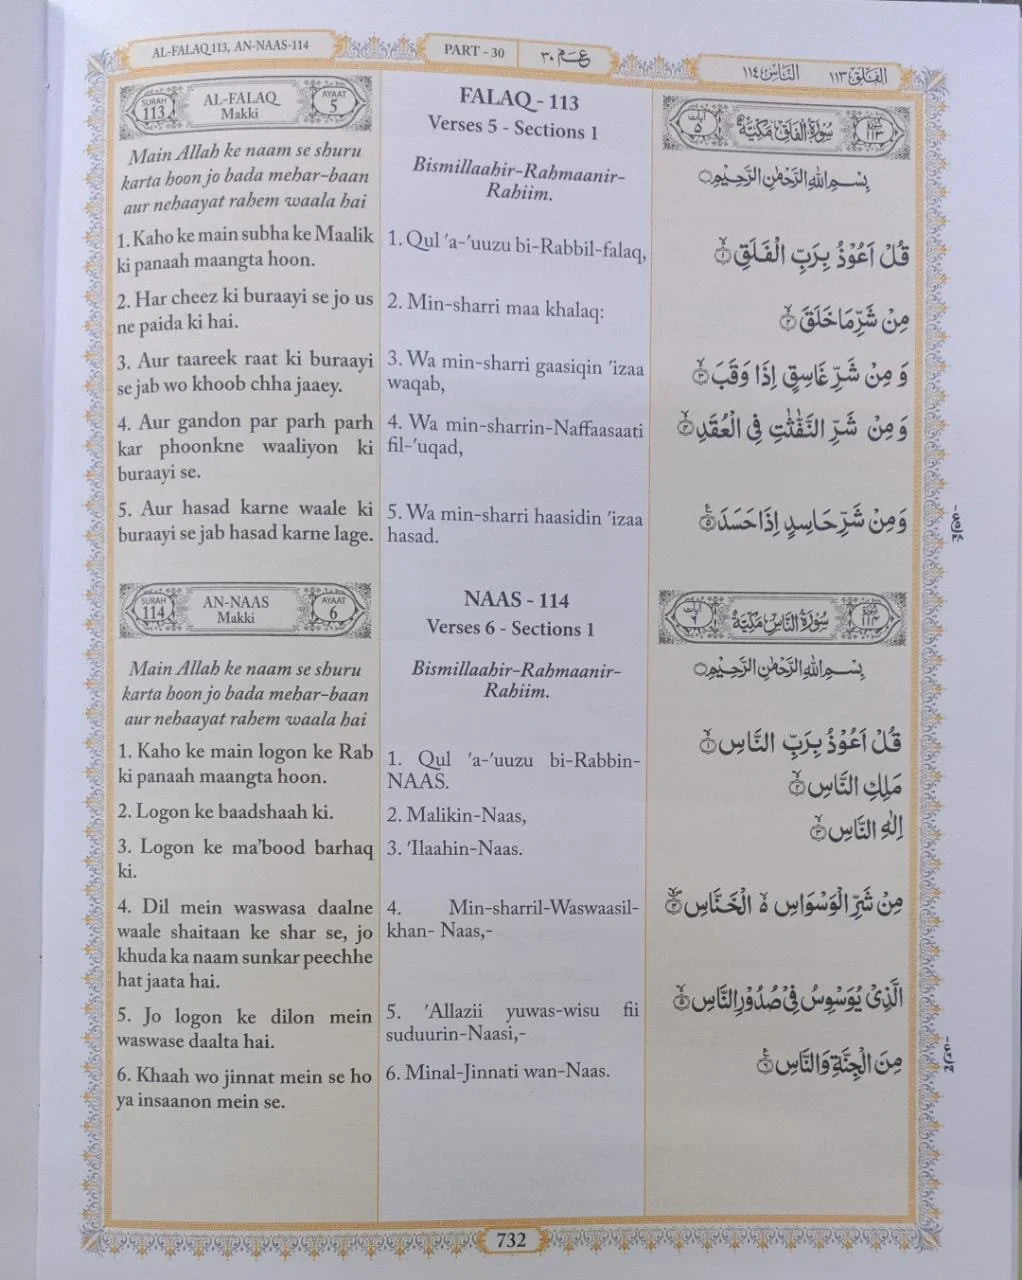 AL-FALAQ 113, AN-NAAS-114
PART - 30
عـم ٣٠
النّاس ١١٤
الفلق ١١٣
SURAH
113
AL-FALAQ
Makki
AYAAT
5
Main Allah ke naam se shuru
karta hoon jo bada mehar-baan
aur nehaayat rahem waala hai
1. Kaho ke main subha ke Maalik
ki panaah maangta hoon.
2. Har cheez ki buraayi se jo us
ne paida ki hai.
3. Aur taareek raat ki buraayi
se jab wo khoob chha jaaey.
4. Aur gandon par parh parh
kar phoonkne waaliyon ki
buraayi se.
5. Aur hasad karne waale ki
buraayi se jab hasad karne lage.
SURAH
114
AN-NAAS
Makki
AYAAT
6
Main Allah ke naam se shuru
karta hoon jo bada mehar-baan
aur nehaayat rahem waala hai
1. Kaho ke main logon ke Rab
ki panaah maangta hoon.
2. Logon ke baadshaah ki.
3. Logon ke ma’bood barhaq
ki.
4. Dil mein waswasa daalne
waale shaitaan ke shar se, jo
khuda ka naam sunkar peechhe
hat jaata hai.
5. Jo logon ke dilon mein
waswase daalta hai.
6. Khaah wo jinnat mein se ho
ya insaanon mein se.
FALAQ - 113
Verses 5 - Sections 1
Bismillaahir-Rahmaanir-
Rahiim.
1. Qul 'a-'uuzu bi-Rabbil-falaq,
2. Min-sharri maa khalaq:
3. Wa min-sharri gaasiqin 'izaa
waqab,
4. Wa min-sharrin-Naffaasaati
fil-'uqad,
5. Wa min-sharri haasidin 'izaa
hasad.
NAAS - 114
Verses 6 - Sections 1
Bismillaahir-Rahmaanir-
Rahiim.
1. Qul 'a-'uuzu bi-Rabbin-
NAAS.
2. Malikin-Naas,
3. 'Ilaahin-Naas.
4. Min-sharril-Waswaasil-
khan- Naas,-
5. 'Allazii yuwas-wisu fii
suduurin-Naasi,-
6. Minal-Jinnati wan-Naas.
١١٣
سُوْرَةُ الْفَلَقِ مَكِّيَّةٌ
اٰیات ٥
بِسْمِ اللّٰهِ الرَّحْمٰنِ الرَّحِيْمِ
قُلْ اَعُوْذُ بِرَبِّ الْفَلَقِ ۙ﴿١﴾
مِنْ شَرِّ مَا خَلَقَ ۙ﴿٢﴾
وَ مِنْ شَرِّ غَاسِقٍ اِذَا وَقَبَ ۙ﴿٣﴾
وَ مِنْ شَرِّ النَّفّٰثٰتِ فِی الْعُقَدِ ۙ﴿٤﴾
وَ مِنْ شَرِّ حَاسِدٍ اِذَا حَسَدَ ﴿٥﴾
١١٤
سُوْرَةُ النَّاسِ مَكِّيَّةٌ
اٰیات ٦
بِسْمِ اللّٰهِ الرَّحْمٰنِ الرَّحِيْمِ
قُلْ اَعُوْذُ بِرَبِّ النَّاسِ ۙ﴿١﴾
مَلِكِ النَّاسِ ۙ﴿٢﴾
اِلٰهِ النَّاسِ ۙ﴿٣﴾
مِنْ شَرِّ الْوَسْوَاسِ ۙ الْخَنَّاسِ ﴿٤﴾
الَّذِیْ یُوَسْوِسُ فِیْ صُدُوْرِ النَّاسِ ۙ﴿٥﴾
مِنَ الْجِنَّةِ وَ النَّاسِ ﴿٦﴾
732